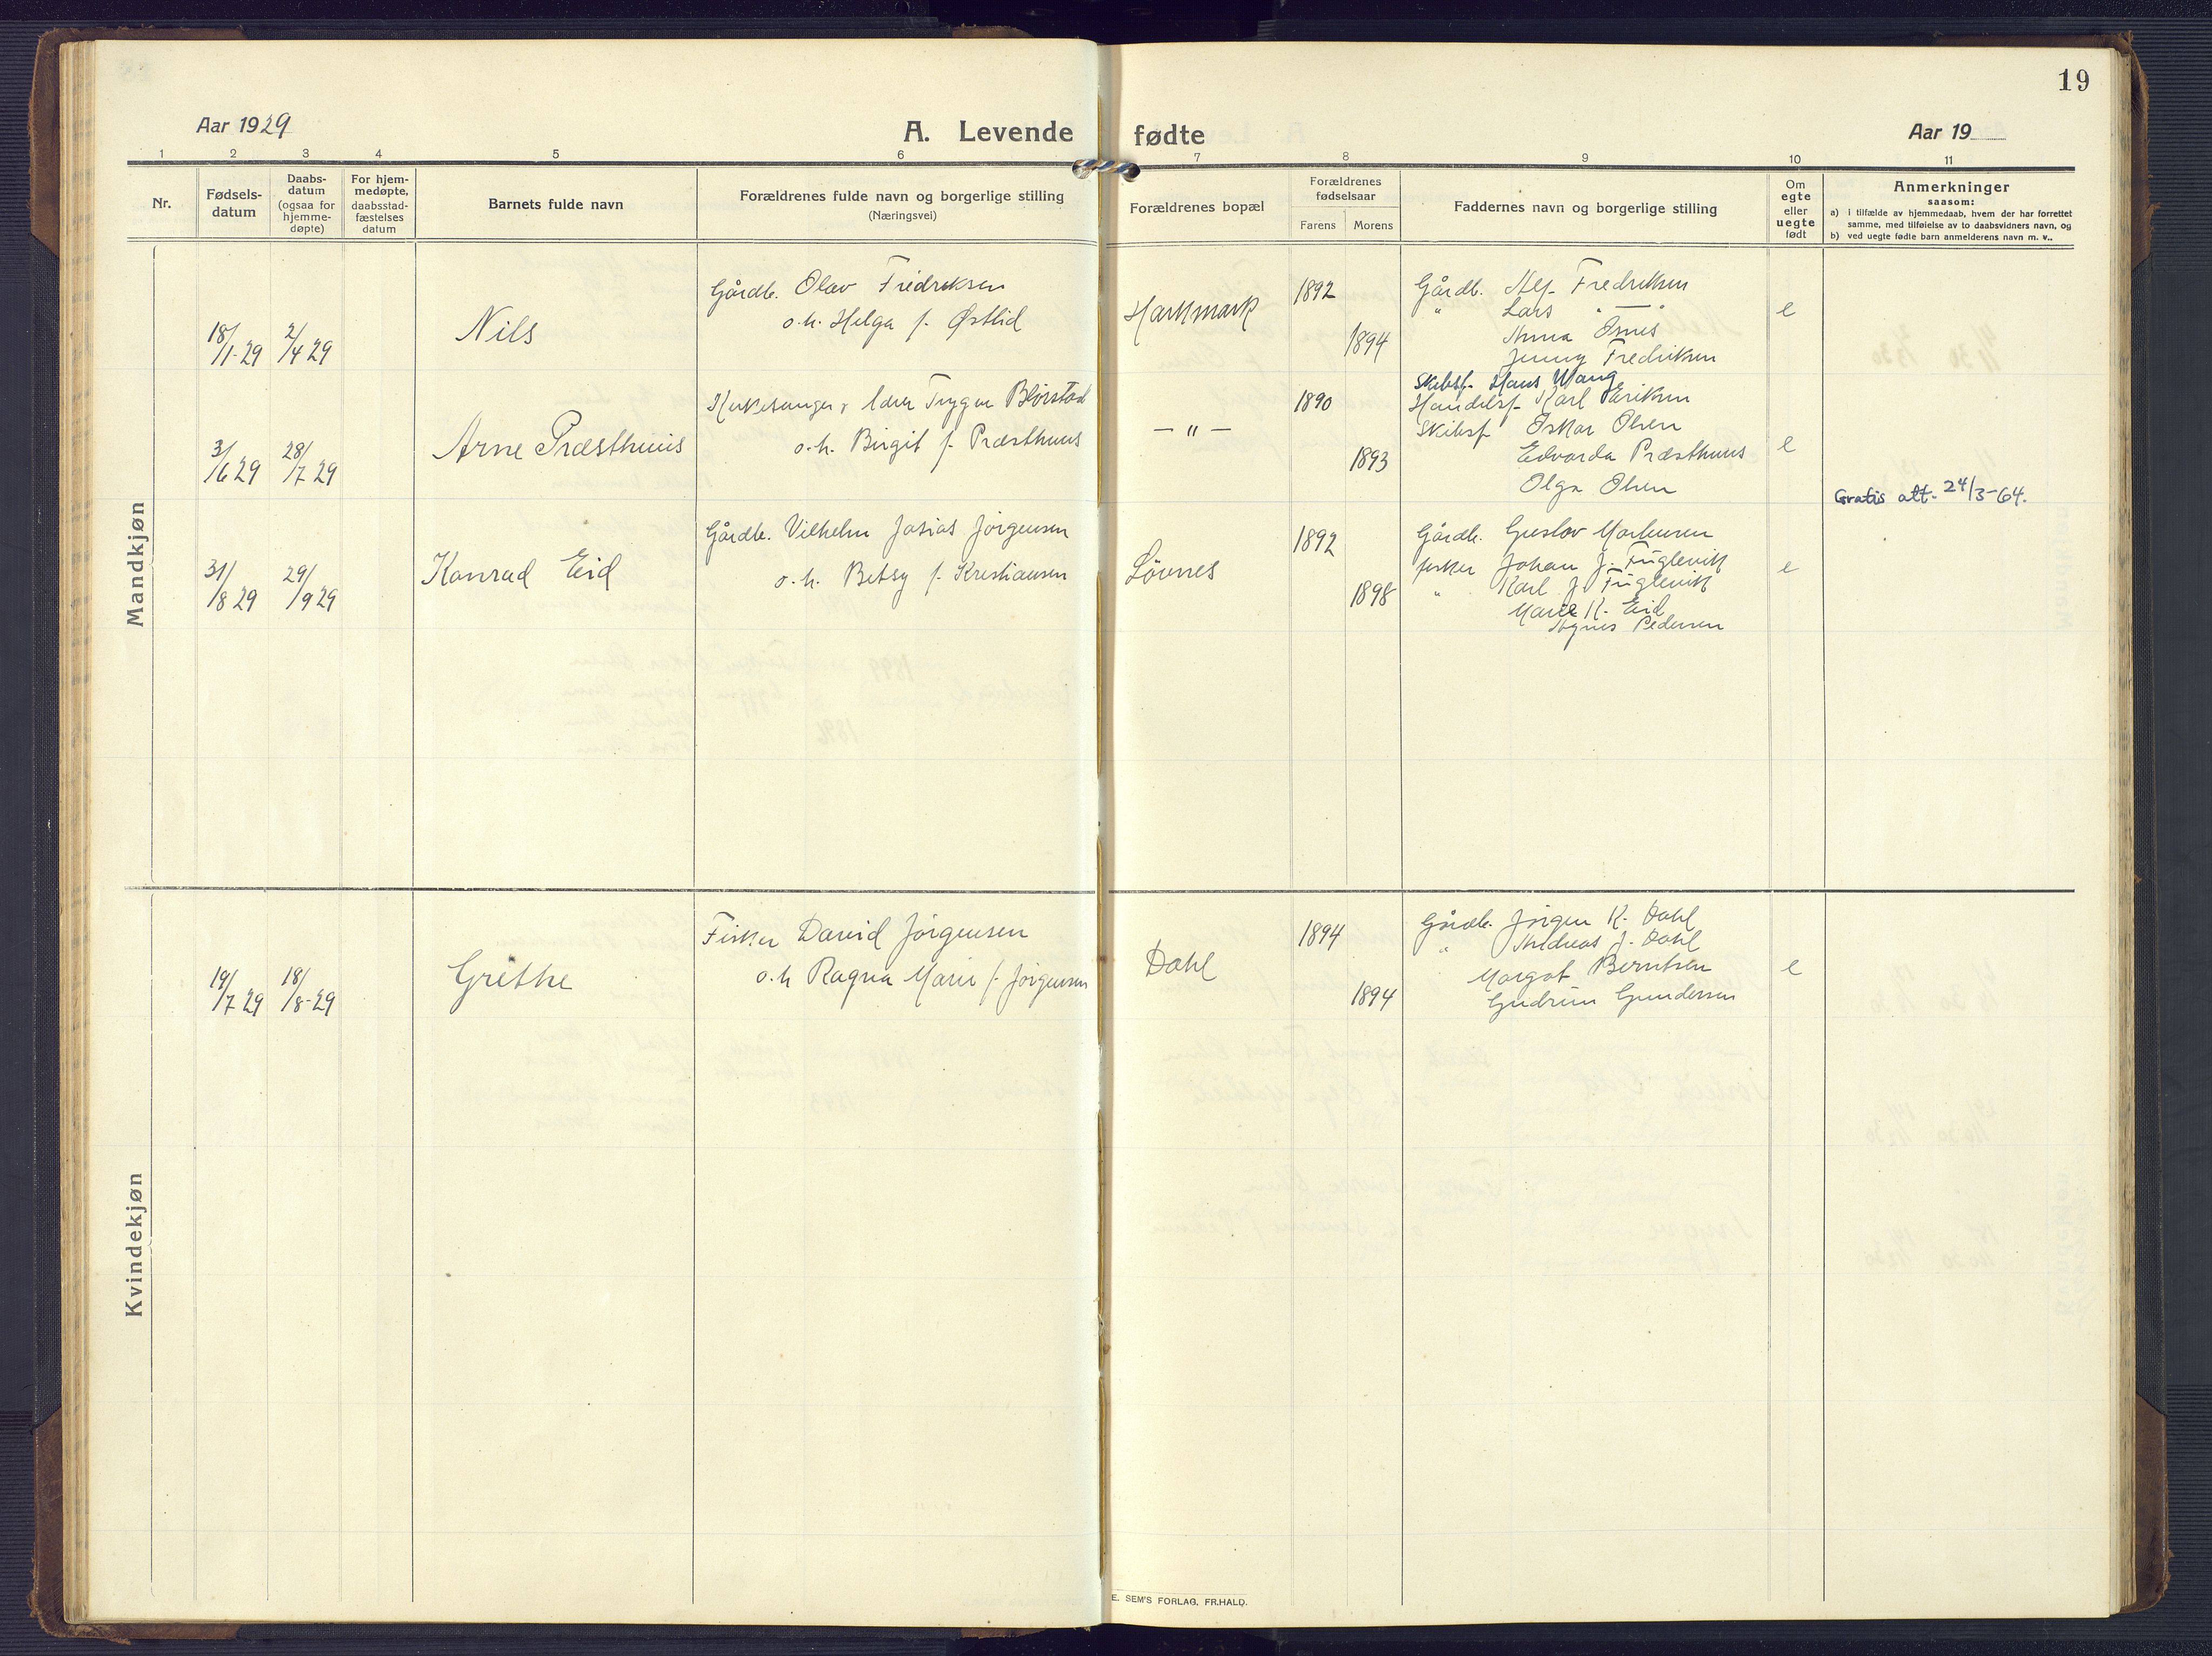 19
Aar 1929
A. Levende fødte
Aar 19
1 2 3 4 5 6 7 8 9 10 11
Nr.
Fødsels-
datum
Daabs-
datum
(ogsaa for
hjemme-
døpte)
For hjem-
medøpte,
daabsstad-
fæstelses
datum
Barnets fulde navn
Forældrenes fulde navn og borgerlige stilling
(Næringsvei)
Forældrenes bopæl
Forældrenes
fødselsaar
Farens Morens
Faddernes navn og borgerlige stilling
Om
egte
eller
uegte
født
Anmerkninger
saasom:
a) i tilfælde av hjemmedaab, hvem der har forrettet
samme, med tilføielse av to daabsvidners navn, og
b) ved uegte fødte barn anmelderens navn m. v..
Mandkjøn
18/1-29 2/4 29
Nils
Gårdb. Olav Fredriksen
o.h. Helga f. Østlid
Harkmark
1892
1894
Gårdb. Alf Fredriksen
" Lars — " —
Anna Osnes
Jenny Fredriksen
e
3/6 29 28/7 29
Arne Præsthuus
Kirkesanger, lærer Trygve Blørstad
o.h. Birgit f. Præsthuus
— " —
1890
1893
Skibsf. Hans Wang
Handelsf. Karl Eriksen
Skibsf Oskar Olsen
Edvarda Præsthuus
Olga Olsen
e
Gratis att. 24/3-64.
31/8 29 29/9 29
Konrad Eid
Gårdb. Vilhelm Josias Jørgensen
o.h. Betsy f. Kristiansen
Løvnes
1892
1898
Gårdb. Gustav Markussen
fisker Johan J. Fuglevik
" Karl J. Fuglevik
Marie K. Eid
Agnes Pedersen
e
Kvindekjøn
19/7 29 18/8-29
Grethe
Fisker David Jørgensen
o.h Ragna Marie f. Jørgensen
Dahl
1894
1894
Gårdb. Jørgen K. Dahl
" Andreas J. Dahl
Margot Berntsen
Gudrun Gundersen
e
E. SEM'S FORLAG, FR.HALD.